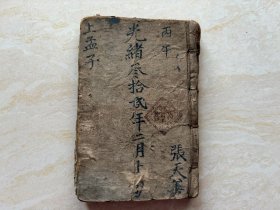 丙午
光緒叁拾弍年二月十
張天
上孟子